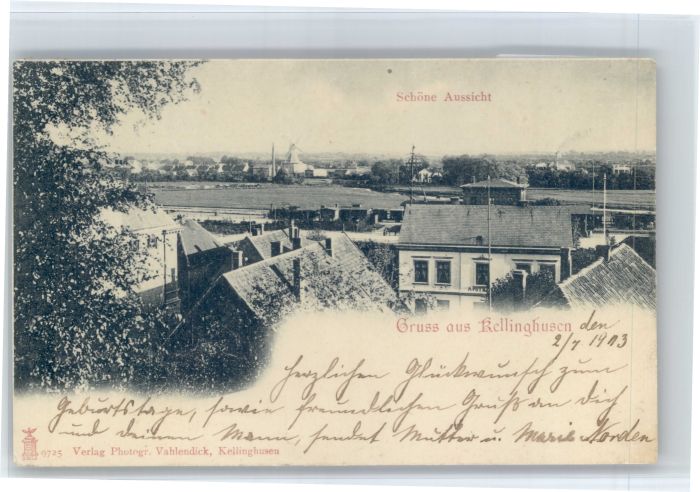 Schöne Aussicht
Gruss aus Kellinghusen den
2/7 1913
Herzlichen Glückwunsch zum
Geburtstage, sowie freundlichen Gruß an Dich
und deinen Mann, sendet Mutter u. Marie Norden
9725 Verlag Photogr. Vahlendick, Kellinghusen